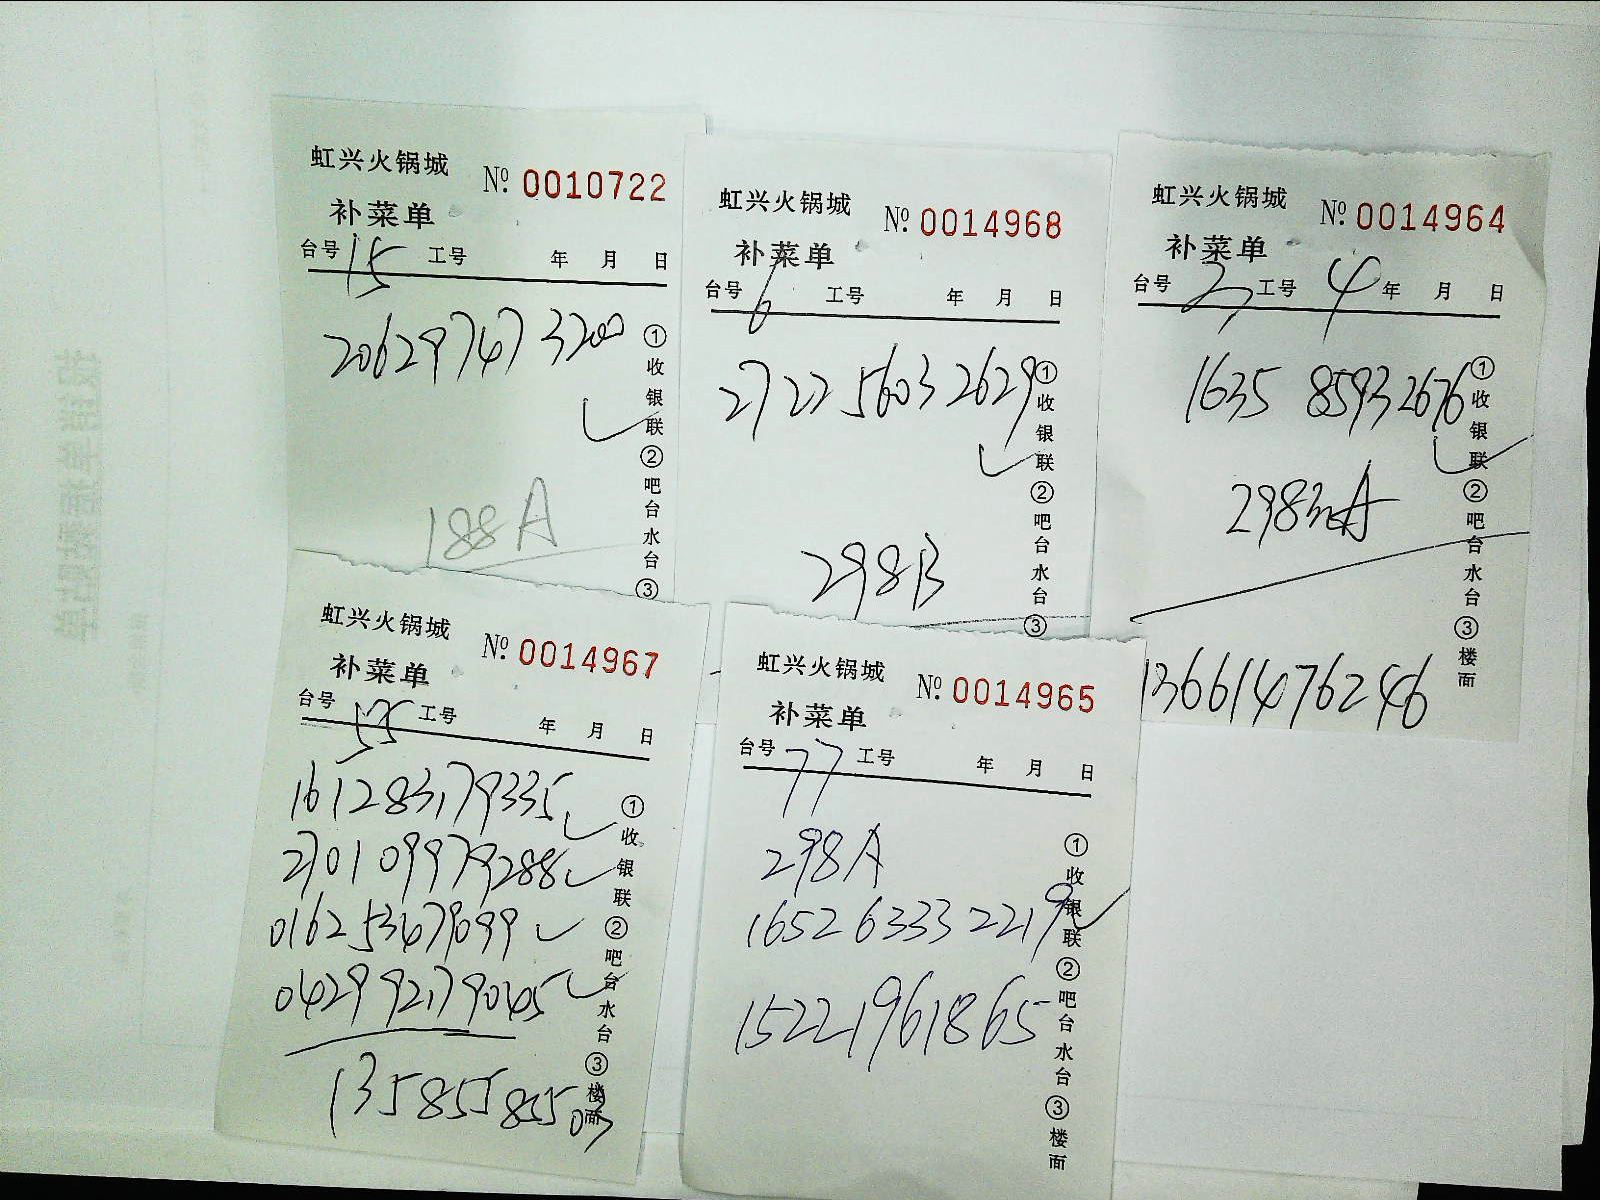 虹兴火锅城 №: 0010722
补菜单
台号 15 工号 年 月 日
206297473200
①收银联②吧台水台③
188A
虹兴火锅城 №: 0014968
补菜单
台号 6 工号 年 月 日
272256032629
①收银联②吧台水台③
298B
虹兴火锅城 №: 0014964
补菜单
台号 27 工号 4 年 月 日
1635 85932676
①收银联②吧台水台③楼面
13661476246
虹兴火锅城 №: 0014967
补菜单
台号 55 工号 年 月 日
161283179335
270109979288
016253479099
042992179045
①收银联②吧台水台③楼面
虹兴火锅城 №: 0014965
补菜单
台号 77 工号 年 月 日
298A
165263332219
15221961865
①收银联②吧台水台③楼面